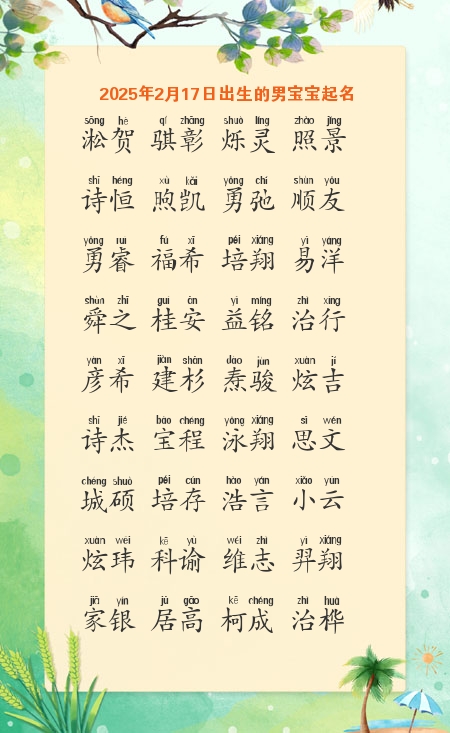 2025年2月17日出生的男宝宝起名
sōng hè qí zhāng shuò líng zhào jǐng
淞贺 骐彰 烁灵 照景
shī héng xù kǎi yǒng chí shùn yǒu
诗恒 煦凯 勇弛 顺友
yǒng ruì fú xī péi xiáng yì yáng
勇睿 福希 培翔 易洋
shùn zhī guì ān yì míng zhì xíng
舜之 桂安 益铭 治行
yàn xī jiàn shān dào jùn xuàn jí
彦希 建杉 焘骏 炫吉
shī jié bǎo chéng yǒng xiáng sī wén
诗杰 宝程 泳翔 思文
chéng shuò péi cún hào yán xiǎo yún
城硕 培存 浩言 小云
xuàn wěi kē yù wéi zhì yì xiáng
炫玮 科谕 维志 羿翔
jiā yín jū gāo kē chéng zhì huà
家银 居高 柯成 治桦